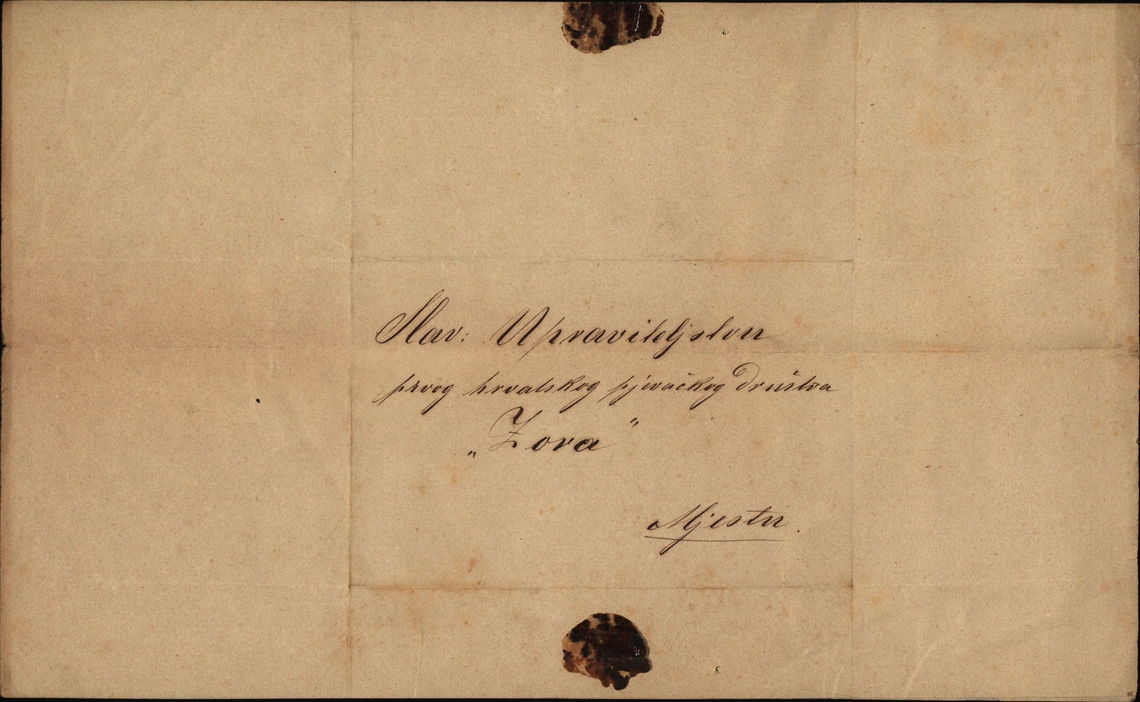 Slav: Upraviteljstvu
prvog hrvatskog pjevačkog društva
„Zora“
Mjestu.